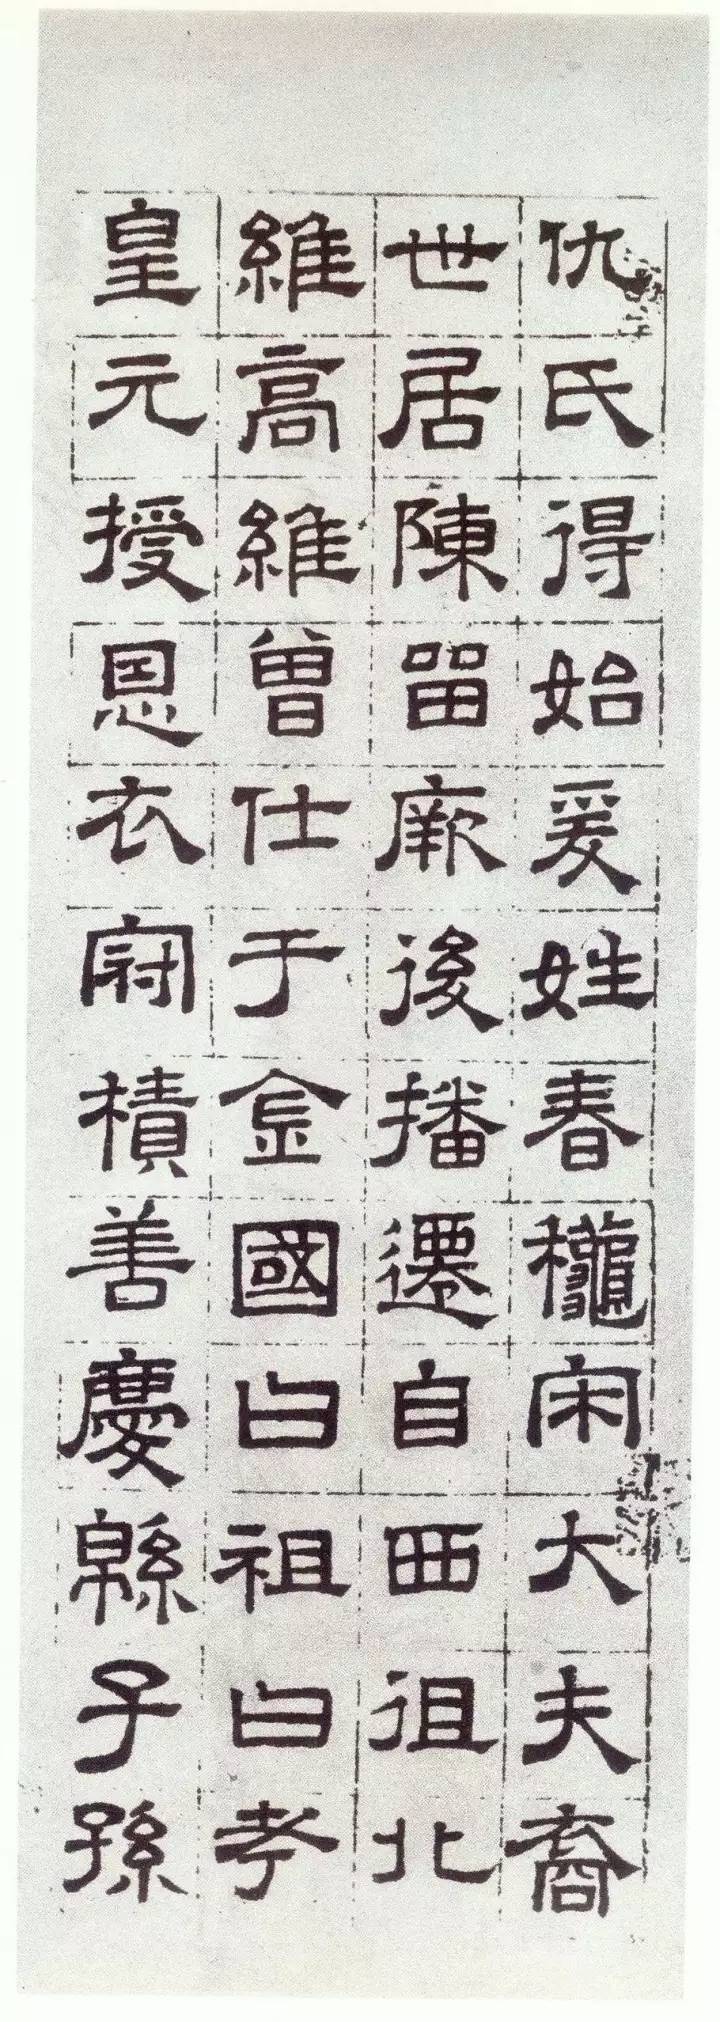 仇氏得始爰姓春龝宋大夫裔
世居陳留厥後播遷自西徂北
維高維曾仕于金國曰祖曰孝
皇元授恩衣冠積善慶緜子孫